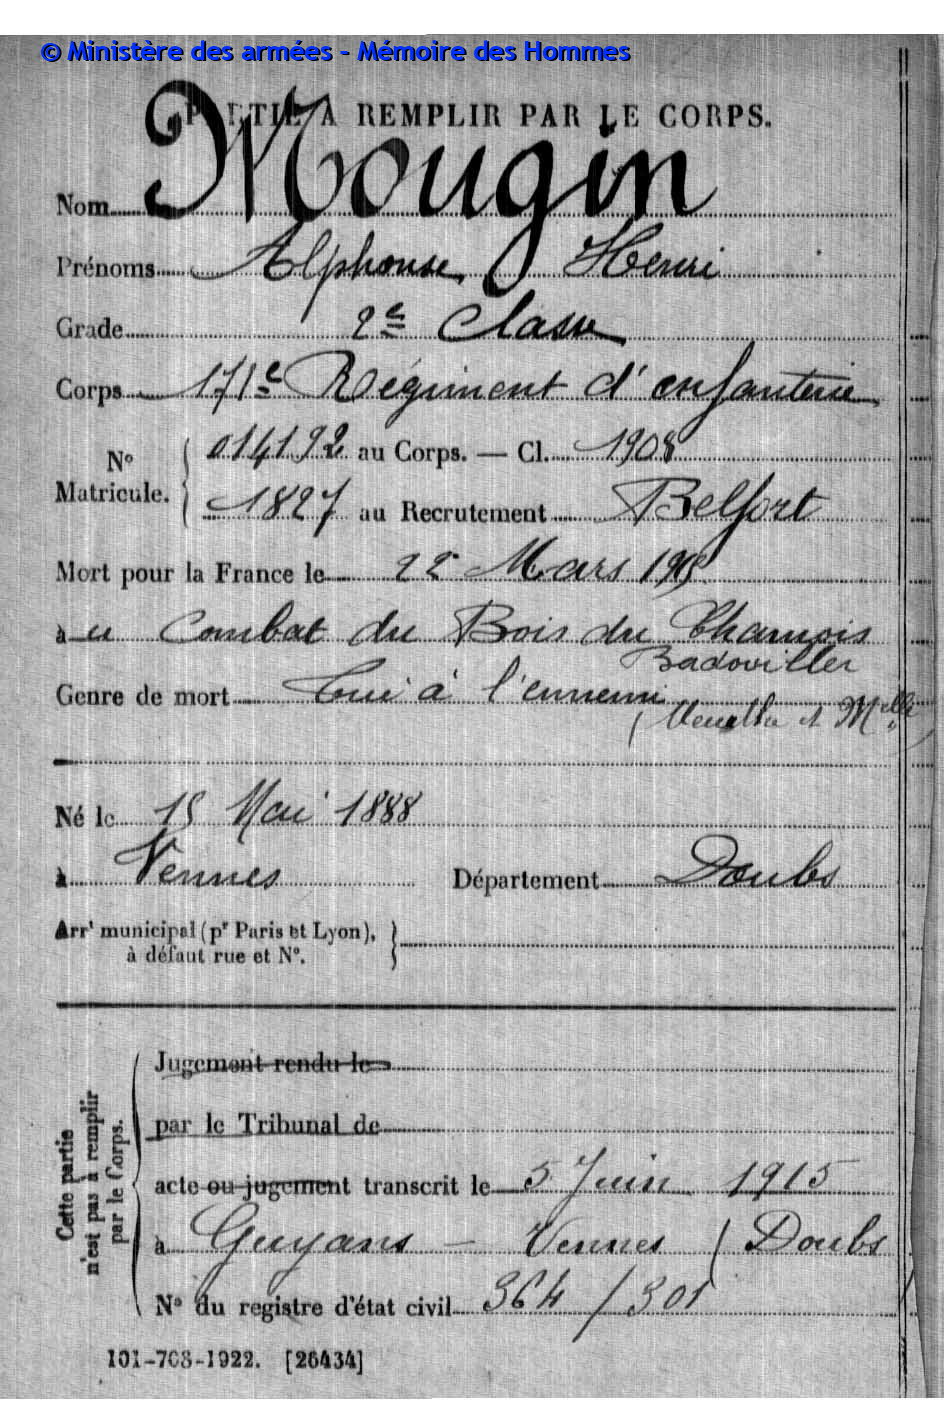 © Ministère des armées - Mémoire des Hommes
PARTIE A REMPLIR PAR LE CORPS.
Nom Mougin
Prénoms Alphonse Henri
Grade 2e Classe
Corps 171e Régiment d'infanterie
No Matricule. 014192 au Corps. — Cl. 1908
1827 au Recrutement Belfort
Mort pour la France le 22 Mars 1915
à u Combat du Bois du Chamois
Badoviller
Genre de mort Tué à l'ennemi
(Meurthe et Mlle)
Né le 15 Mai 1888
à Vennes Département Doubs
Arrt municipal (pr Paris et Lyon),
à défaut rue et No.
Cette partie
n'est pas à remplir
par le Corps.
Jugement rendu le
par le Tribunal de
acte ou jugement transcrit le 5 Juin 1915
à Guyans - Vennes (Doubs
No du registre d'état civil 364/301
101-708-1922. [26434]